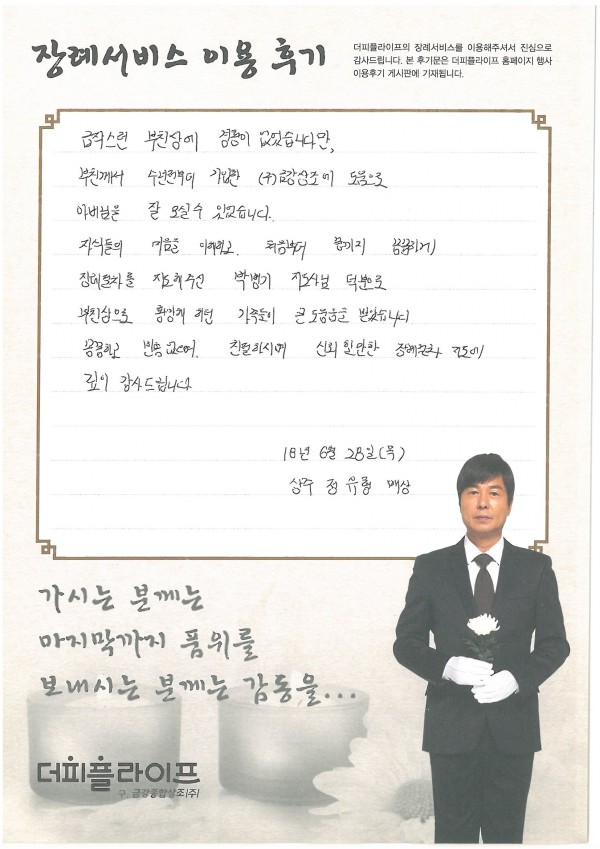 장례서비스 이용 후기
더피플라이프의 장례서비스를 이용해주셔서 진심으로
감사드립니다. 본 후기문은 더피플라이프 홈페이지 행사
이용후기 게시판에 기재됩니다.
급작스런 부친상에 경황이 없었습니다만,
부친께서 수년전부터 가입한 (주)금강상조에 도움으로
아버님은 잘 모실수 있었습니다.
자식들의 마음을 이해하고 처음부터 끝까지 꼼꼼하게
장례절차를 지도해주신 박병기 지도사님 덕분으로
부친상으로 황망해 하던 가족들이 큰 도움을 받았습니다
꼼꼼하고 빈틈없으며, 친절하시며 신뢰할만한 장례절차 지도에
깊이 감사드립니다
18년 6월 28일(목)
상주 정유 배상
가시는 분께는
마지막까지 품위를
보내시는 분께는 감동을...
더피플라이프
구. 금강종합상조(주)